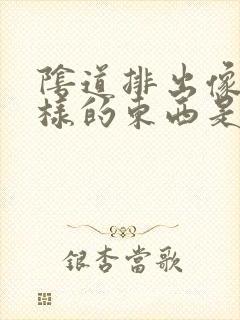 陰道排出像
樣的東西是
銀杏當歌